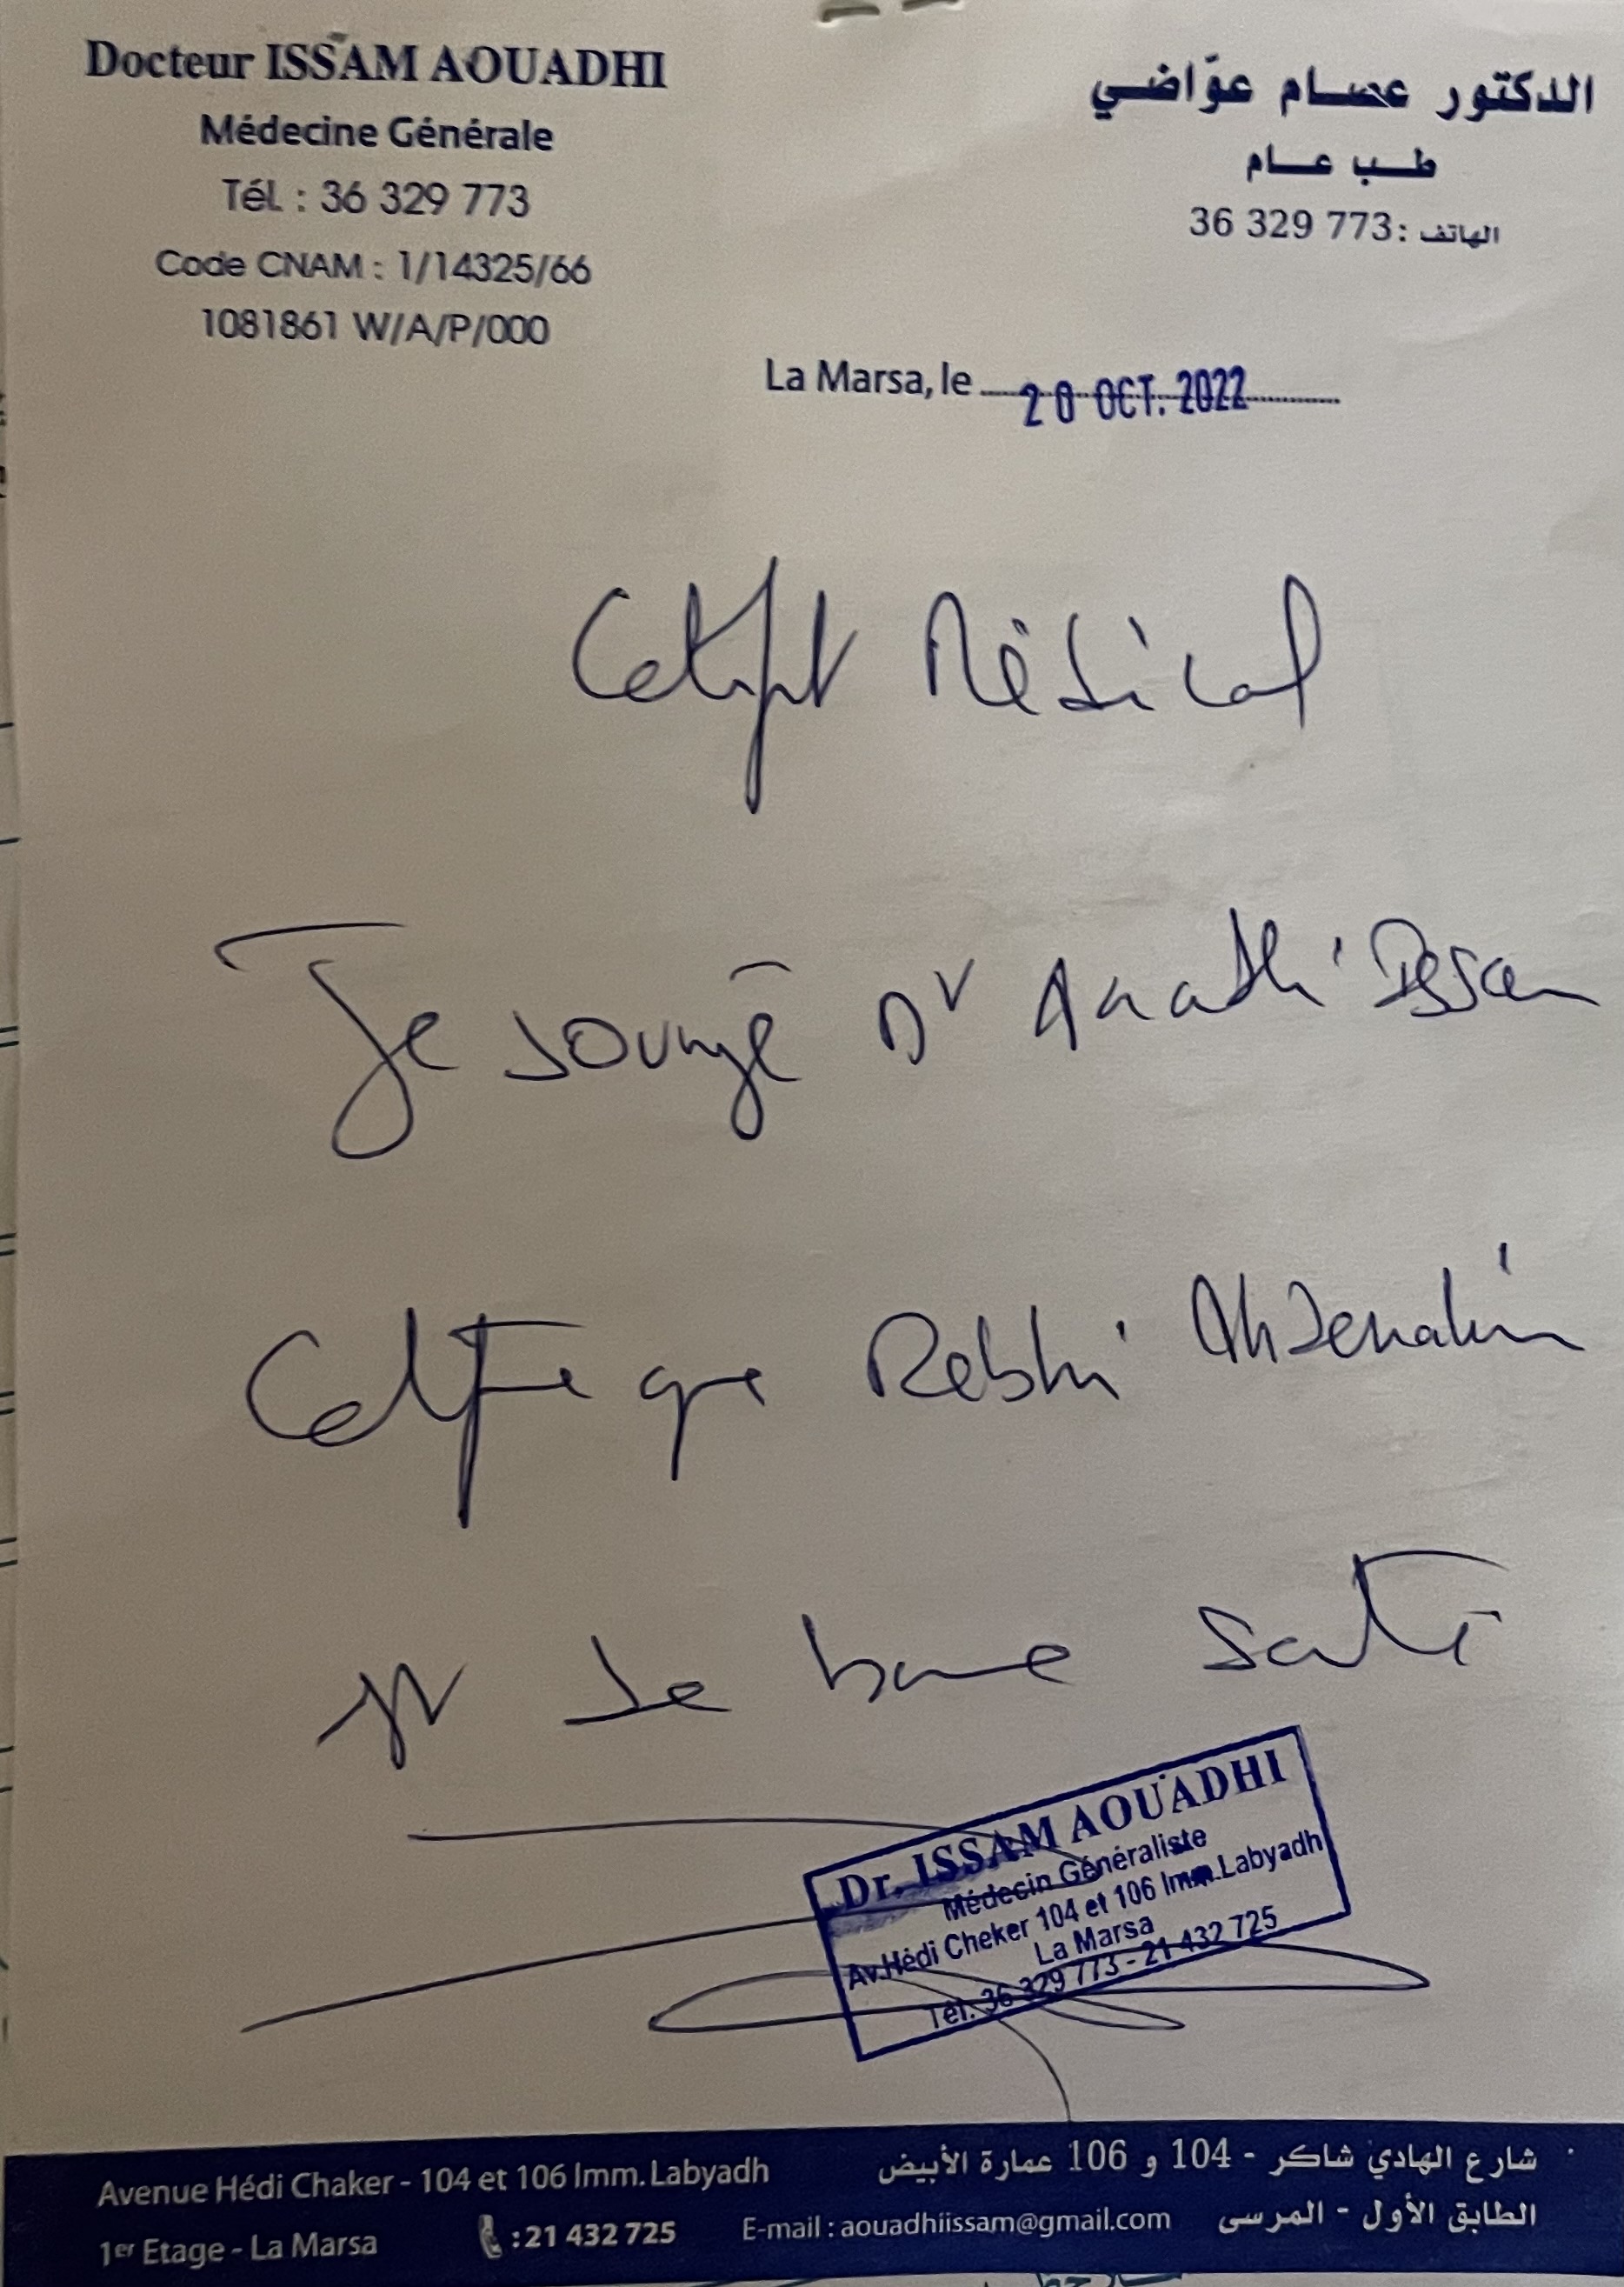 Docteur ISSAM AOUADHI
Médecine Générale
Tél. : 36 329 773
Code CNAM : 1/14325/66
1081861 W/A/P/000
الدكتور عصام عوّاضي
طب عام
الهاتف : 36 329 773
La Marsa, le 20 OCT. 2022
Certificat Médical
Je soussigné Dr Aouadhi Issam
Certifie que Rebhi
est de bonne santé
Dr. ISSAM AOUADHI
Médecin Généraliste
Av.Hédi Cheker 104 et 106 Imm.Labyadh
La Marsa
Tél. 36 329 773 - 21 432 725
Avenue Hédi Chaker - 104 et 106 Imm. Labyadh
1er Etage - La Marsa
: 21 432 725
E-mail : aouadhiissam@gmail.com
شارع الهادي شاكر - 104 و 106 عمارة الأبيض
الطابق الأول - المرسى